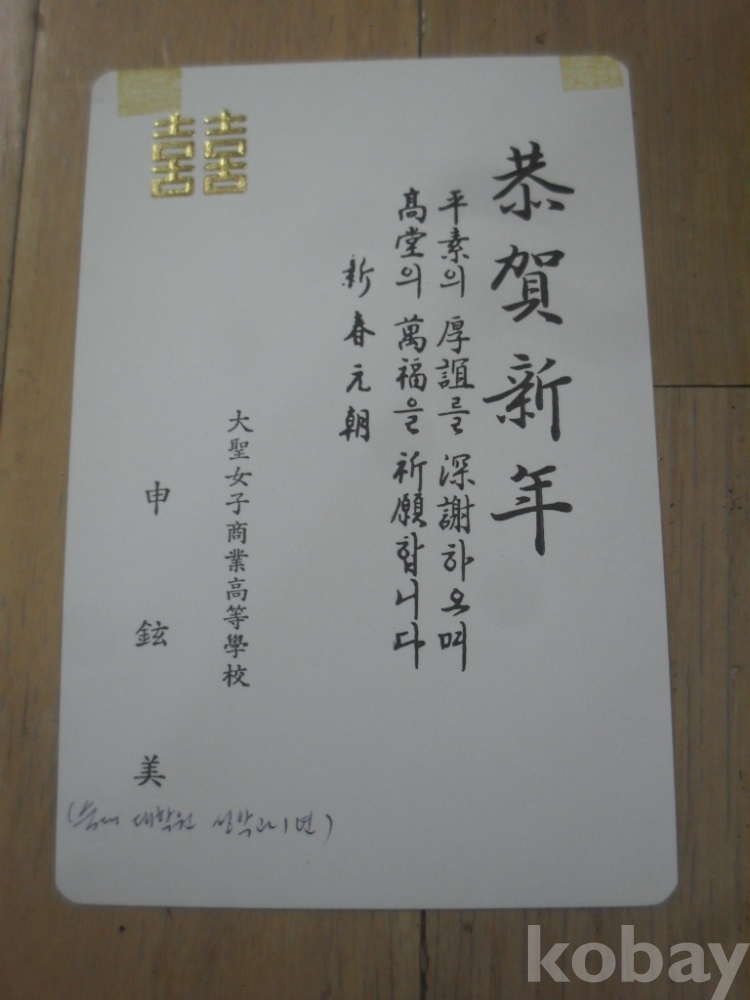 恭賀新年
平素의 厚誼를 深謝하오며
高堂의 萬福을 祈願합니다
新春元朝
大聖女子商業高等學校
申鉉美
(숙대 대학원 성악과 1년)
囍
kobay